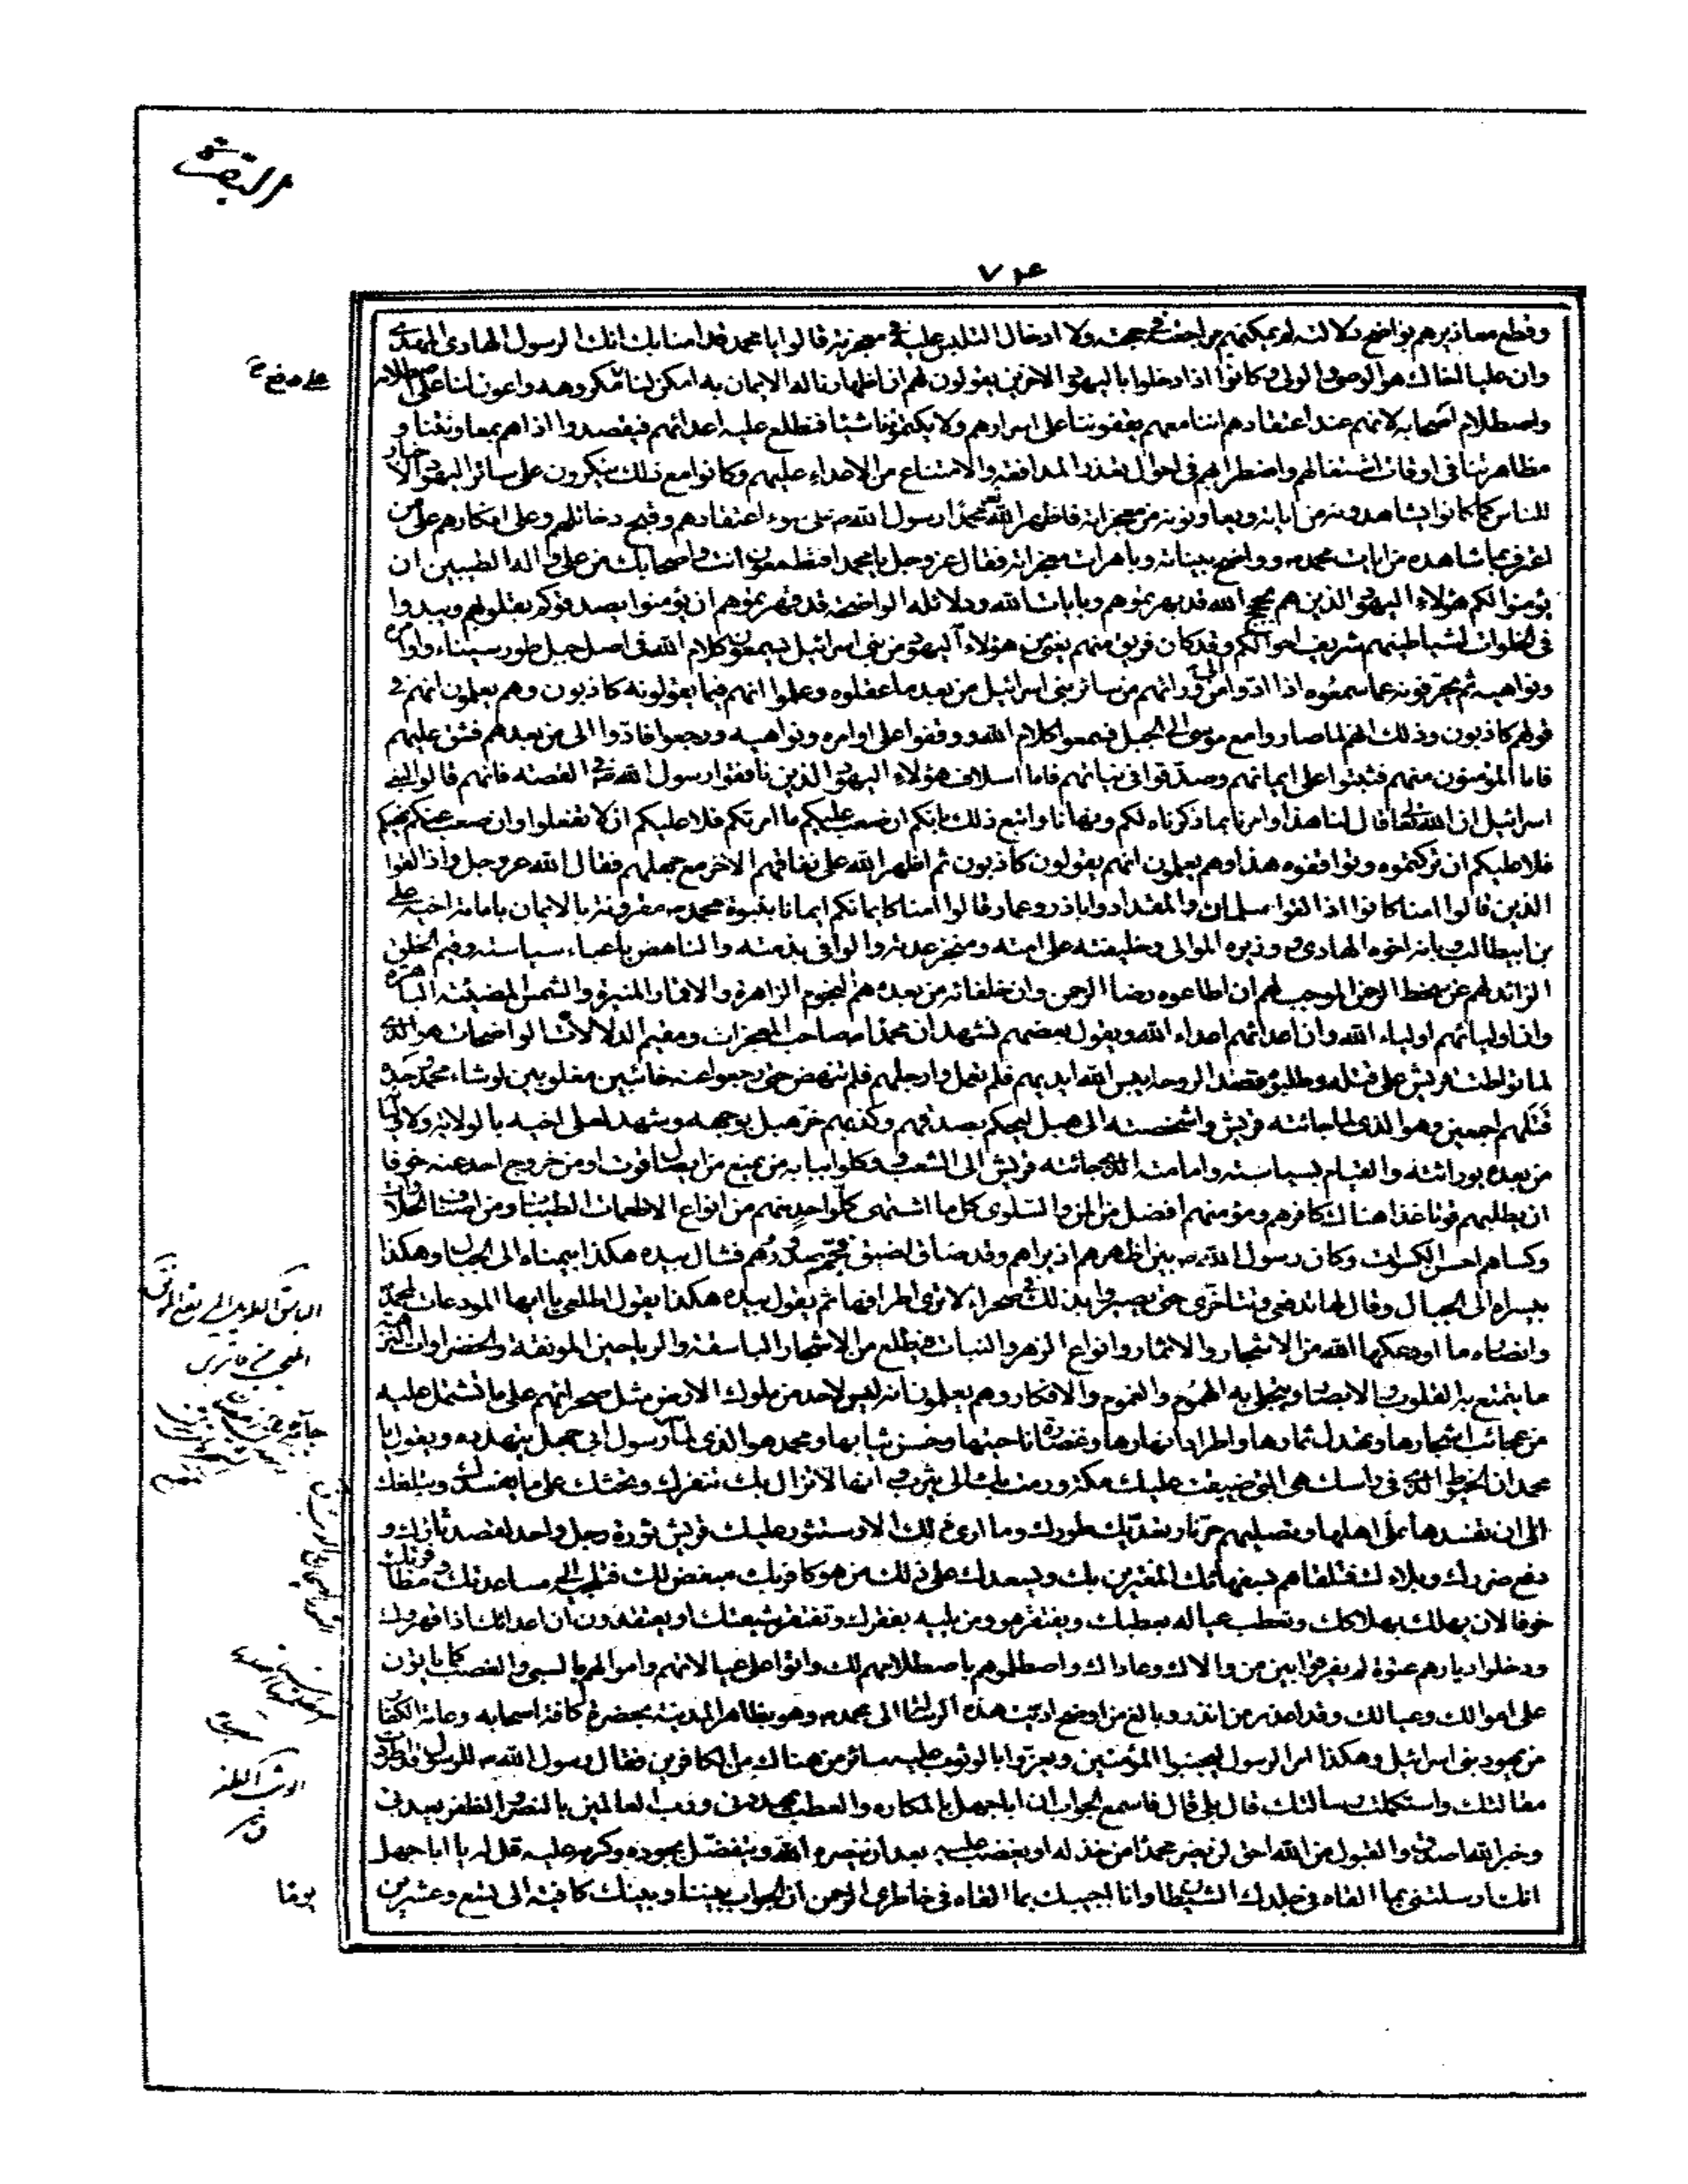 البقرة
٧٤
وقطع معاذيرهم بواضح دلالته لم يمكنهم مراجعته في حجته ولا ادخال التلبيس عليه في معجزته قالوا يا محمد قد امنا بك انك الرسول الهادي المهدي
وان عليا اخاك هو الوصي والولي وكانوا اذا دخلوا باليهود الاخرين يقولون لهم ان اظهارنا له الايمان به امكن لنا من مكروهه واعون لنا على اصطلامه
واصطلام اصحابه لانهم عند اعتقادهم اننا معهم يقفوننا على اسرارهم ولا يكتموننا شيئا فنطلع عليهم اعدائهم فيقصدوا اذاهم بمعاونتنا و
مظاهرتنا في اوقات اشتغالهم واضطرابهم في احوال تعذر المدافعة والامتناع من الاعداء عليهم وكانوا مع ذلك ينكرون على سائر اليهود الاخبار
للناس كما كانوا يشاهدونه من اياته ويعاينونه من معجزاته فاظهر الله محمدا رسول الله على سوء اعتقادهم وقبيح دخائلهم وعلى انكارهم على من
اعترف بما شاهده من ايات محمد وواضح بيناته وباهرات معجزاته فقال عز وجل يا محمد افتطمعون انت واصحابك من علي واله الطيبين ان
يؤمنوا لكم هؤلاء اليهود الذين هم بحجج الله قد بهرتموهم وبايات الله ودلائله الواضحة قد قهرتموهم ان يؤمنوا بصدقوكم بقلوبهم ويبدوا
في الخلوات لشياطينهم شريف احوالكم وقد كان فريق منهم يعني من هؤلاء اليهود من بني اسرائيل يسمعون كلام الله في اصل جبل طور سيناء واوامره
ونواهيه ثم يحرفونه عما سمعوه اذا ادوا الى من ورائهم من سائر بني اسرائيل من بعد ما عقلوه وعلموا انهم فيما يقولونه كاذبون وهم يعلمون انهم في
قولهم كاذبون وذلك انهم لما صاروا مع موسى الى الجبل فسمعوا كلام الله ووقفوا على اوامره ونواهيه ورجعوا فادوا الى من بعدهم فشق عليهم
فاما المؤمنون منهم فثبتوا على ايمانهم وصدقوا في نياتهم فاما اسلاف هؤلاء اليهود الذين نافقوا رسول الله في هذه القصة فانهم قالوا لبني
اسرائيل ان الله تعالى قال لنا هذا وامرنا بما ذكرناه لكم ونهانا واتبع ذلك بانكم ان صعب عليكم ما امرتكم فلا عليكم ان لا تفعلوا وان صعب عنكم نهيكم
فلا عليكم ان تركبتموه وتواقعوه هذا وهم يعلمون انهم يقولون كاذبون ثم اظهر الله على نفاقهم الاخر مع جهلهم فقال الله عز وجل واذا لقوا
الذين قالوا امنا كانوا اذا لقوا سلمان والمقداد واباذر وعمار قالوا امنا كايمانكم ايمانا بنبوة محمد مقرونة بالايمان بامامة اخيه علي
بن ابيطالب وبانه اخوه الهادي ووزيره الموالي وخليفته على امته ومنجز عدته والوافي بذمته والناهض باعباء سياسته وقيم الخلق
الزائد لهم عن سخط الرحمن الموجب لهم ان اطاعوه رضا الرحمن وان خلفائه من بعده هم النجوم الزاهرة والاقمار المنيرة والشمس المضيئة الباهرة
وان اوليائهم اولياء الله وان اعدائهم اعداء الله ويقول بعضهم نشهد ان محمدا صاحب المعجزات ومقيم الدلالات الواضحات هو الذي
لما تواطئت قريش على قتله وطلبوه فقصدا لروحه ايبس الله ايديهم فلم تعمل وارجلهم فلم تنهض حتى رجعوا عنه خائبين مغلوبين لو شاء محمد وحده
قتلهم اجمعين وهو الذي لما جائته قريش واشخصته الى هبل ليحكم بصدقهم وكذبه خر هبل لوجهه وشهد له ولعلي اخيه بالولاية ولاوليائه
من بعده بوراثته والقيام بسياسته وامامته الذي جائته قريش الى الشعب ووكلوا ببابه من يمنع من ايصال قوت او من خروج احد عنه خوفا
ان يطلبهم قوتا غذا هناك كافرهم ومؤمنهم افضل من المن والسلوى كل ما اشتهى كل واحد منهم من انواع الاطعمات الطيبات ومن اصناف الحلاوات
وكساهم احسن الكسوات وكان رسول الله بين اظهرهم اذ يراهم وقد ضاق لضيق فجهم صدورهم فقال بيده هكذا بيمناه الى الجبال وهكذا
بيسراه الى الجبال وقال لها اندفعي فتتأخرى حتى يصيروا بذلك في صحراء لا ترى اطرافها ثم يقول بيده هكذا يقول اطلعي يا ايتها المودعات لمحمد
وانصاره ما اودعكها الله من الاشجار والاثمار وانواع الزهر والنبات فتطلع من الاشجار الباسقة والرياحين المونقة والخضراوات النزهة
ما يتمتع به القلوب والابصار وينجلي به الهموم والغموم والافكار وهم يعلمون انه ليس لاحد من ملوك الارض مثل صحرائهم على ما تشتمل عليه
من عجائب اشجارها وتهدل ثمارها واطراد انهارها وغضارة رياحينها وحسن نباتها ومحمد هو الذي لما جاء رسول ابي جهل يتهدده ويقول يا
محمد ان الخبوط التي في راسك هي التي ضيقت عليك مكة ورمت بك الى يثرب وانها لا تزال بك تنفرك وتحثك على ما يفسدك ويتلفك
الى ان تفسدها على اهلها وتصليهم حر نار تعديك طورك وما ارى ذلك الا وستثور عليك قريش ثورة رجل واحد لقصد ثارك و
دفع ضررك وبلائك فتلقاهم بسفهائك المغترين بك ويسعدك على ذلك من هو كافر بك مبغض لك فيلجئه الى مساعدتك ومظافرتك
خوفا لان يهلك بهلاكك وتعطب عياله بعطبك ويفتقر هو ومن يليه بفقرك وتفتقر شيعتك او يعتقدون ان اعدائك اذا قهروك
ودخلوا ديارهم عنوة لم يفرقوا بين من والاك وعاداك واصطلموهم باصطلامهم لك واتوا على عيالاتهم واموالهم بالسبي والنهب كما ياتون
على اموالك وعيالك وقد اعذر من انذر وبالغ من اوضح اديت هذه الرسالة الى محمد وهو بظاهر المدينة بحضرة كافة اصحابه وعامة الكفار
من يهود بني اسرائيل وهكذا امر الرسول ليجبنوا المؤمنين ويغروا بالوثوب عليه سائر من هناك من الكافرين فقال رسول الله للرسول قد اطردت
مقالتك واستكملت رسالتك قال بلى قال فاسمع الجواب ان اباجهل بالمكاره والعطب يهددني ورب العالمين بالنصر والظفر يعدني
وخبر الله اصدق والقبول من الله احق لن يضر محمدا من خذله او يغضب عليه بعد ان ينصره الله ويتفضل بجوده وكرمه عليه قل له يا اباجهل
انك ارسلتني بما القاه في خلدك الشيطان وانا اجيبك بما القاه في خاطري الرحمن ان الحرب بيننا وبينك كافية الى تسع وعشرين
يوما